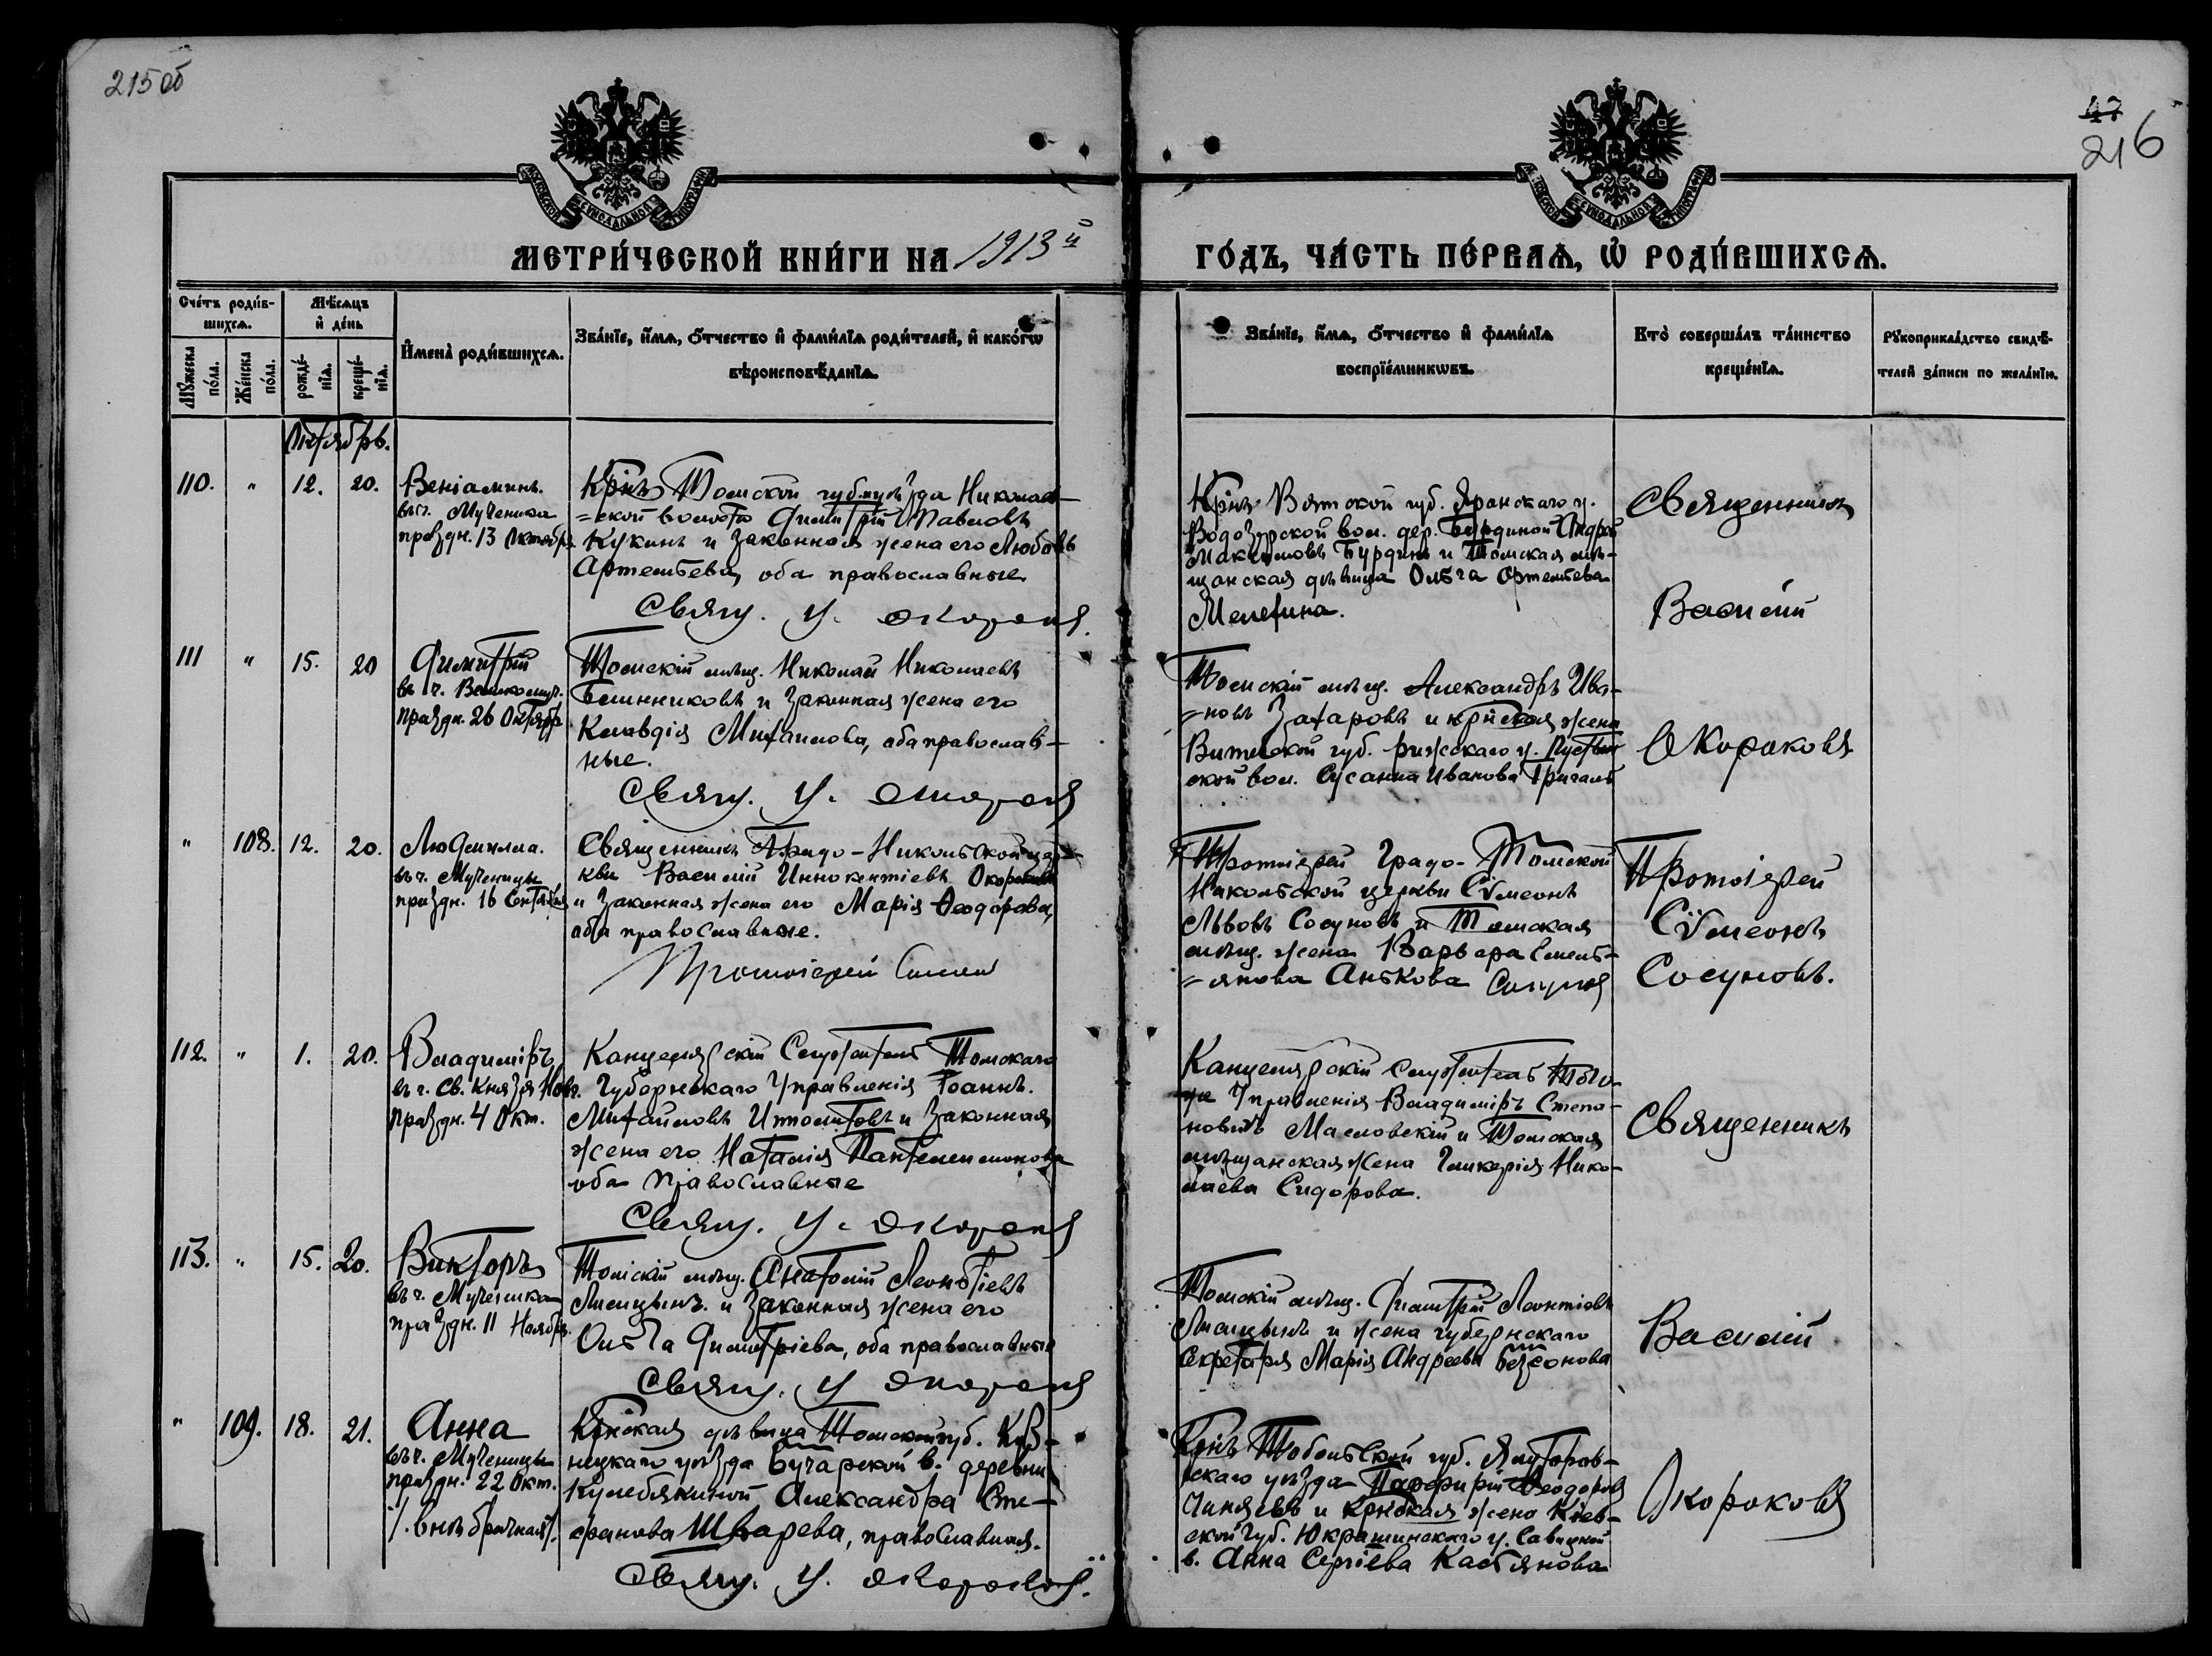 215 об
47
216
МОСКОВСКОЙ СѴНОДАЛЬНОЙ ТИПОГРАФІИ
МОСКОВСКОЙ СѴНОДАЛЬНОЙ ТИПОГРАФІИ
МЕТРИ́ЧЕСКОЙ КНИ́ГИ НА 1913й
ГО́ДЪ, ЧА́СТЬ ПЕ́РВАѦ, Ѡ҆ РОДИ́ВШИХСѦ.
Сче́тъ роди́в-
шихсѧ.
Мꙋ́жеска
по́ла.
Же́нска
по́ла.
Мѣ́сѧцъ
и҆ де́нь
рожде́-
нїѧ.
креще́-
нїѧ.
И҆мена̀ роди́вшихсѧ.
Зва́нїе, и҆́мѧ, ѻ҆́тчество и҆ фами́лїѧ роди́телей, и҆ како́гѡ
вѣроисповѣ́данїѧ.
Зва́нїе, и҆́мѧ, ѻ҆́тчество и҆ фами́лїѧ
воспрїе́мникѡвъ.
Кто̀ соверша́лъ та́инство
креще́нїѧ.
Рꙋкоприкла́дство свидѣ́-
телей за́писи по жела́нїю.
Октябрь.
110. " 12. 20.
Веніаминъ.
въ ч. Мученика
праздн. 13 Октября
Кр-нъ Томской губ. и уѣзда Николаев-
=ской волости Димитрій Павловъ
Кукинъ и законная жена его Любовь
Артемьева, оба православные.
Свящ. И. Окороковъ.
Кр-нъ Вятской губ. Яранскаго у.
Водозерской вол. дер. Бурдиной Андрей
Максимовъ Бурдинъ и Томская мѣ-
щанская дѣвица Ольга Артемьева
Мелехина.
Священникъ
Василій
111 " 15. 20
Димитрій
въ ч. Великомуч.
праздн. 26 Октября
Томскій мѣщ. Николай Николаевъ
Блинниковъ и законная жена его
Клавдія Михаилова, оба православ-
ные.
Свящ. И. Окороковъ
Томскій мѣщ. Александръ Ива-
=новъ Захаровъ и кр-нская жена
Витебской губ. рижскаго у.
ской вол. Сусанна Иванова Тригаль
Окороковъ
" 108. 12. 20.
Людмила.
въ ч. Мученицы
праздн. 16 Сентября
Священникъ Градо-Никольской цер-
кви Василій Иннокентіевъ Окороковъ
и законная жена его Марія Ѳеодорова,
оба православные.
Протоіерей Симеон
Протоіерей Градо-Томской
Никольской церкви Сѵмеонъ
Львовъ Сосуновъ и Томская
мѣщ. жена Варвара Емель-
=янова Анькова Сосуновъ
Протоіерей
Сѵмеонъ
Сосуновъ.
112. " 1. 20.
Владиміръ
въ ч. Св. Князя Новг.
праздн. 4 Окт.
Канцелярскій Служитель Томскаго
Губернскаго Управленія Іоаннъ
Михаиловъ Ипполитовъ и законная
жена его Наталія Пантелеимонова
оба православные
Свящ. И. Окороковъ
Канцелярскій Служитель Того-
же Управленія Владиміръ Степа-
новичъ Масловскій и Томская
мѣщанская жена Гликерія Нико-
лаева Сидорова.
Священникъ
113. " 15. 20.
Викторъ
въ ч. Мученика
праздн. 11 Ноября.
Томскій мѣщ. Анатолій Леонтіевъ
Лисицынъ и законная жена его
Ольга Димитріева, оба православные
Свящ. И Окороковъ
Томскій мѣщ. Димитрій Леонтіевъ
Лисицынъ и жена губернскаго
Секретаря Марія Андреева Безсонова
Василій
" 109. 18. 21.
Анна
въ ч. Мученицы
праздн. 22 Окт.
/. внѣбрачная/.
Кр-нская дѣвица Томской губ. Куз-
нецкаго уѣзда Бачарской в. деревни
Кулебякиной Александра Сте-
=фанова Шварева, православная.
Свящ. И. Окороковъ.
Кр-нъ Тобольской губ. Ялуторов-
скаго уѣзда Парфирій Ѳеодоровъ
Чиняевъ и кр-нская жена Кіев-
ской губ. у. Савицкой
в. Анна Сергіева Касьянова
Окороковъ